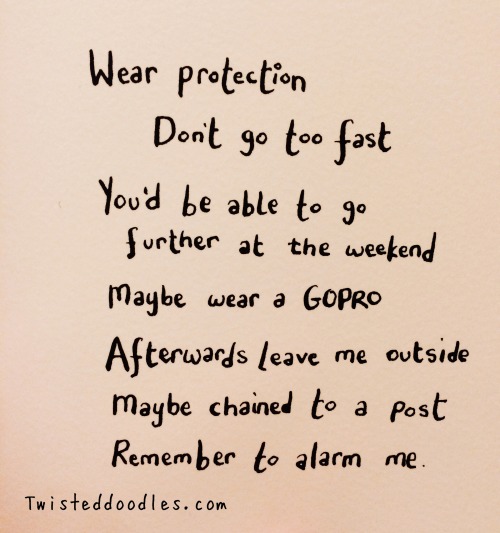 Wear protection
Don't go too fast
You'd be able to go
further at the weekend
Maybe wear a GOPRO
Afterwards leave me outside
Maybe chained to a post
Remember to alarm me.
Twisteddoodles.com